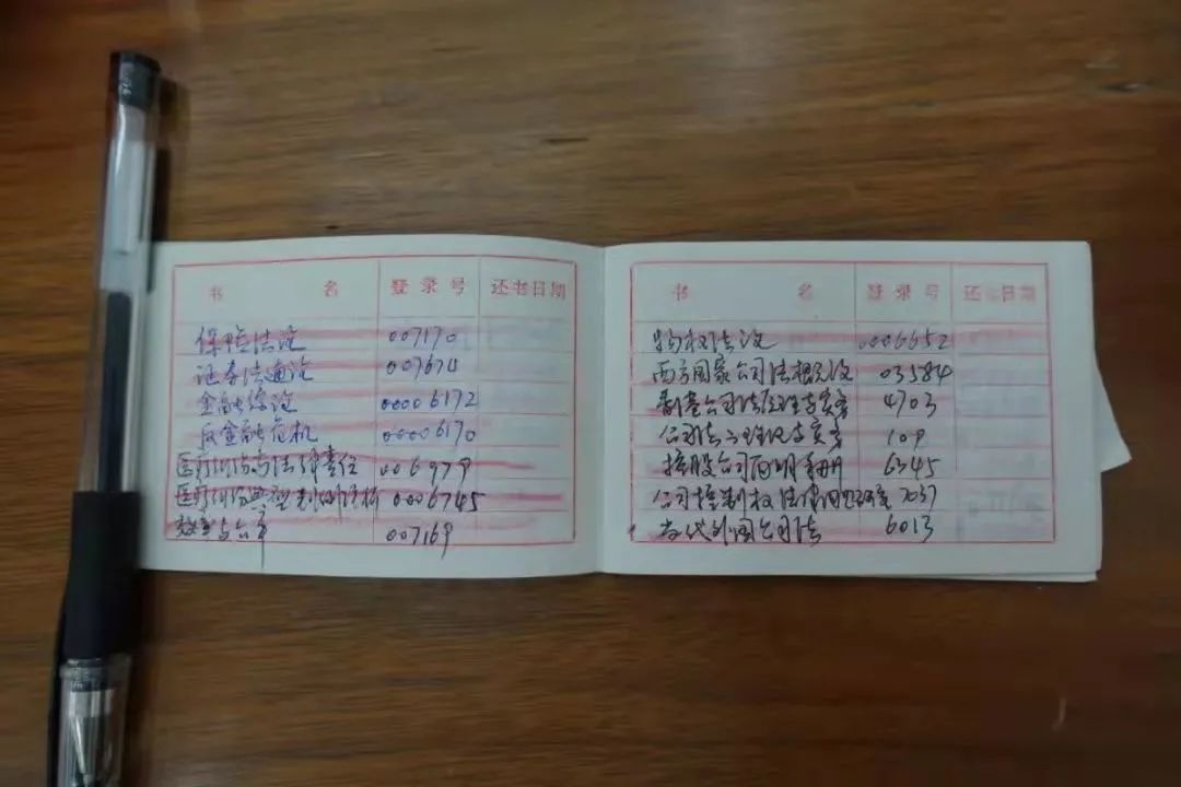 书 名 登录号 还书日期
保险法论 007170
证券法通论 007674
金融综论 00006172
反金融危机 00006170
医疗纠纷与法律责任 006979
医疗纠纷典型判例评析 0006745
007169
书 名 登录号 还书日期
物权法论 0006652
西方国家公司法概论 03584
公司法原理与实务 4703
公司法 与实务 109
控股公司 手册 6345
公司控制权法律 7037
当代外国公司法 6013